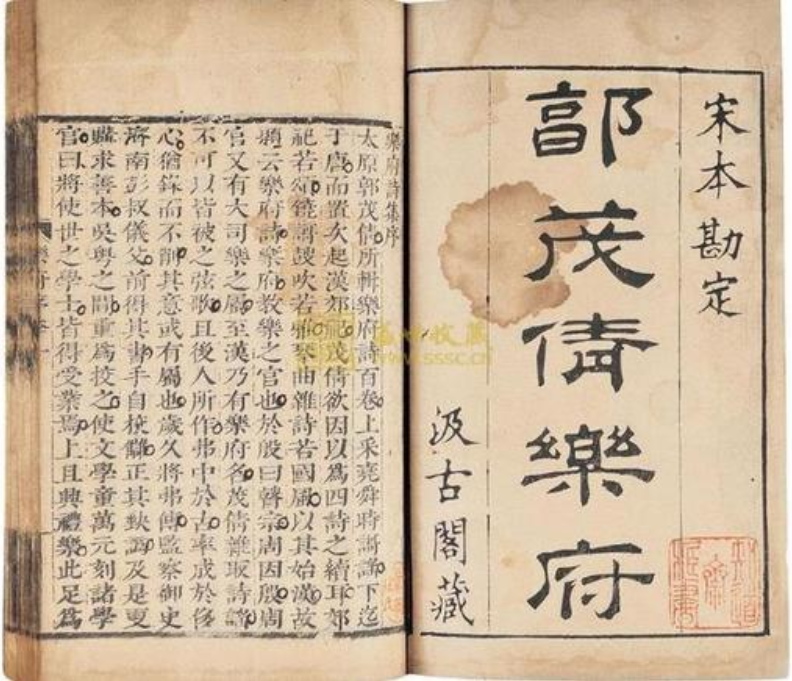 宋本勘定
郭茂倩樂府
汲古閣藏
樂府詩集序
太原郭茂倩所輯樂府詩百卷上采堯舜時歌謠下迄
于唐而置次起漢郊祀茂倩欲因以為四詩之續耳郊
祀若頌鐃歌鼓吹若雅琴曲雜詩若國風以其始漢故
題云樂府詩樂府教樂之官也於殷曰瞽宗周因殷周
官又有大司樂之屬至漢乃有樂府名茂倩雜取詩謠
不可以皆被之弦歌且後人所作弗中於古率成於後
心猶錄而不削其意或有屬也歲久將弗傳監察御史
濟南彭叔儀父前得其書手自校讎正其缺譌及是更
購求善本吳粵之間重為挍之使文學童萬元刻諸學
官曰將使世之學士皆得受業焉上且興禮樂此足為
WWW.SSSC.CN